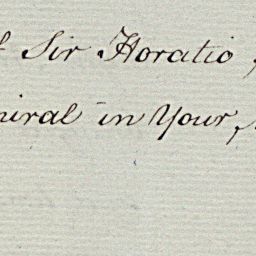 Sir Horatio
in Your